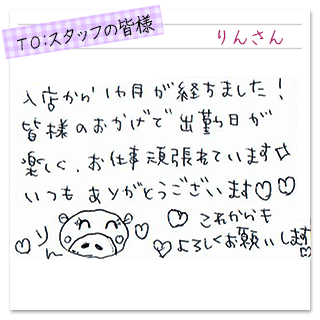 TO:スタッフの皆様
りんさん
入店から1ヵ月が経ちました!
皆様のおかげで出勤日が
楽しく、お仕事頑張れています☆
いつもありがとうございます♡♡
♡これからも
♡よろしくお願いします♡
♡りん